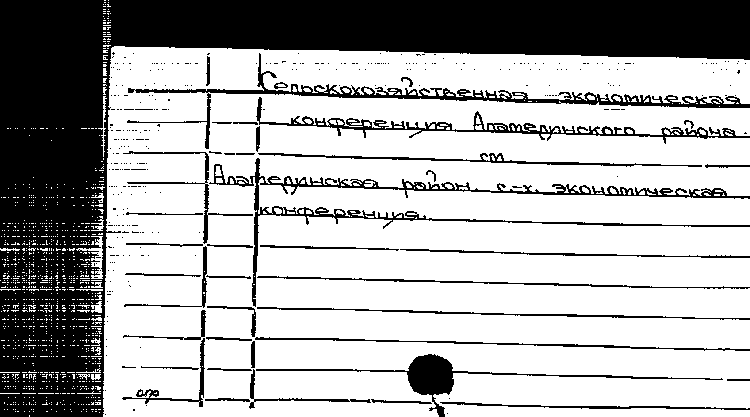 Сельскохозяйственная экономическая
конференция Аламединского района.
см.
Аламединская район. с.-х. экономическая
конференция.